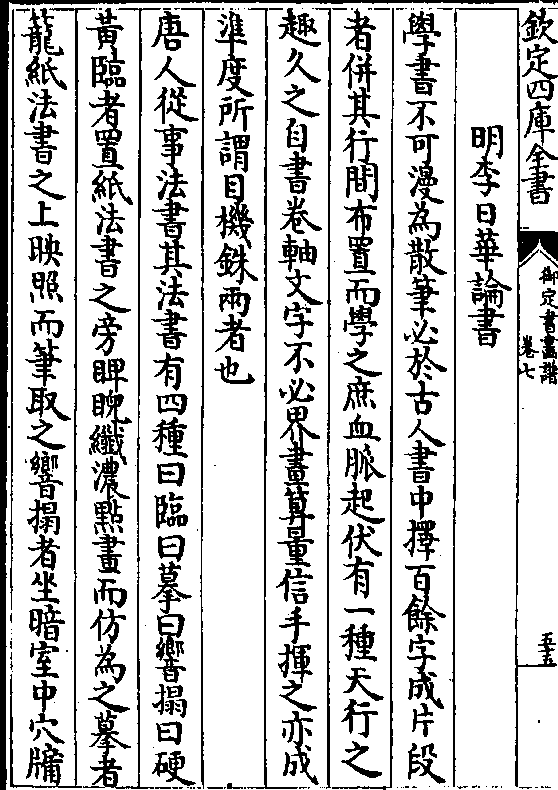 欽定四庫全書
御定書畫譜
卷七
五
明李日華論書
學書不可漫為散筆必於古人書中擇百餘字成片段
者併其行間布置而學之庶血脈起伏有一種天行之
趣久之自書卷軸文字不必界畫算量信手揮之亦成
準度所謂目機銖兩者也
唐人從事法書其法書有四種曰臨曰摹曰響搨曰硬
黃臨者置紙法書之旁睥睨纖濃點畫而仿為之摹者
籠紙法書之上映照而筆取之響搨者坐暗室中穴牖